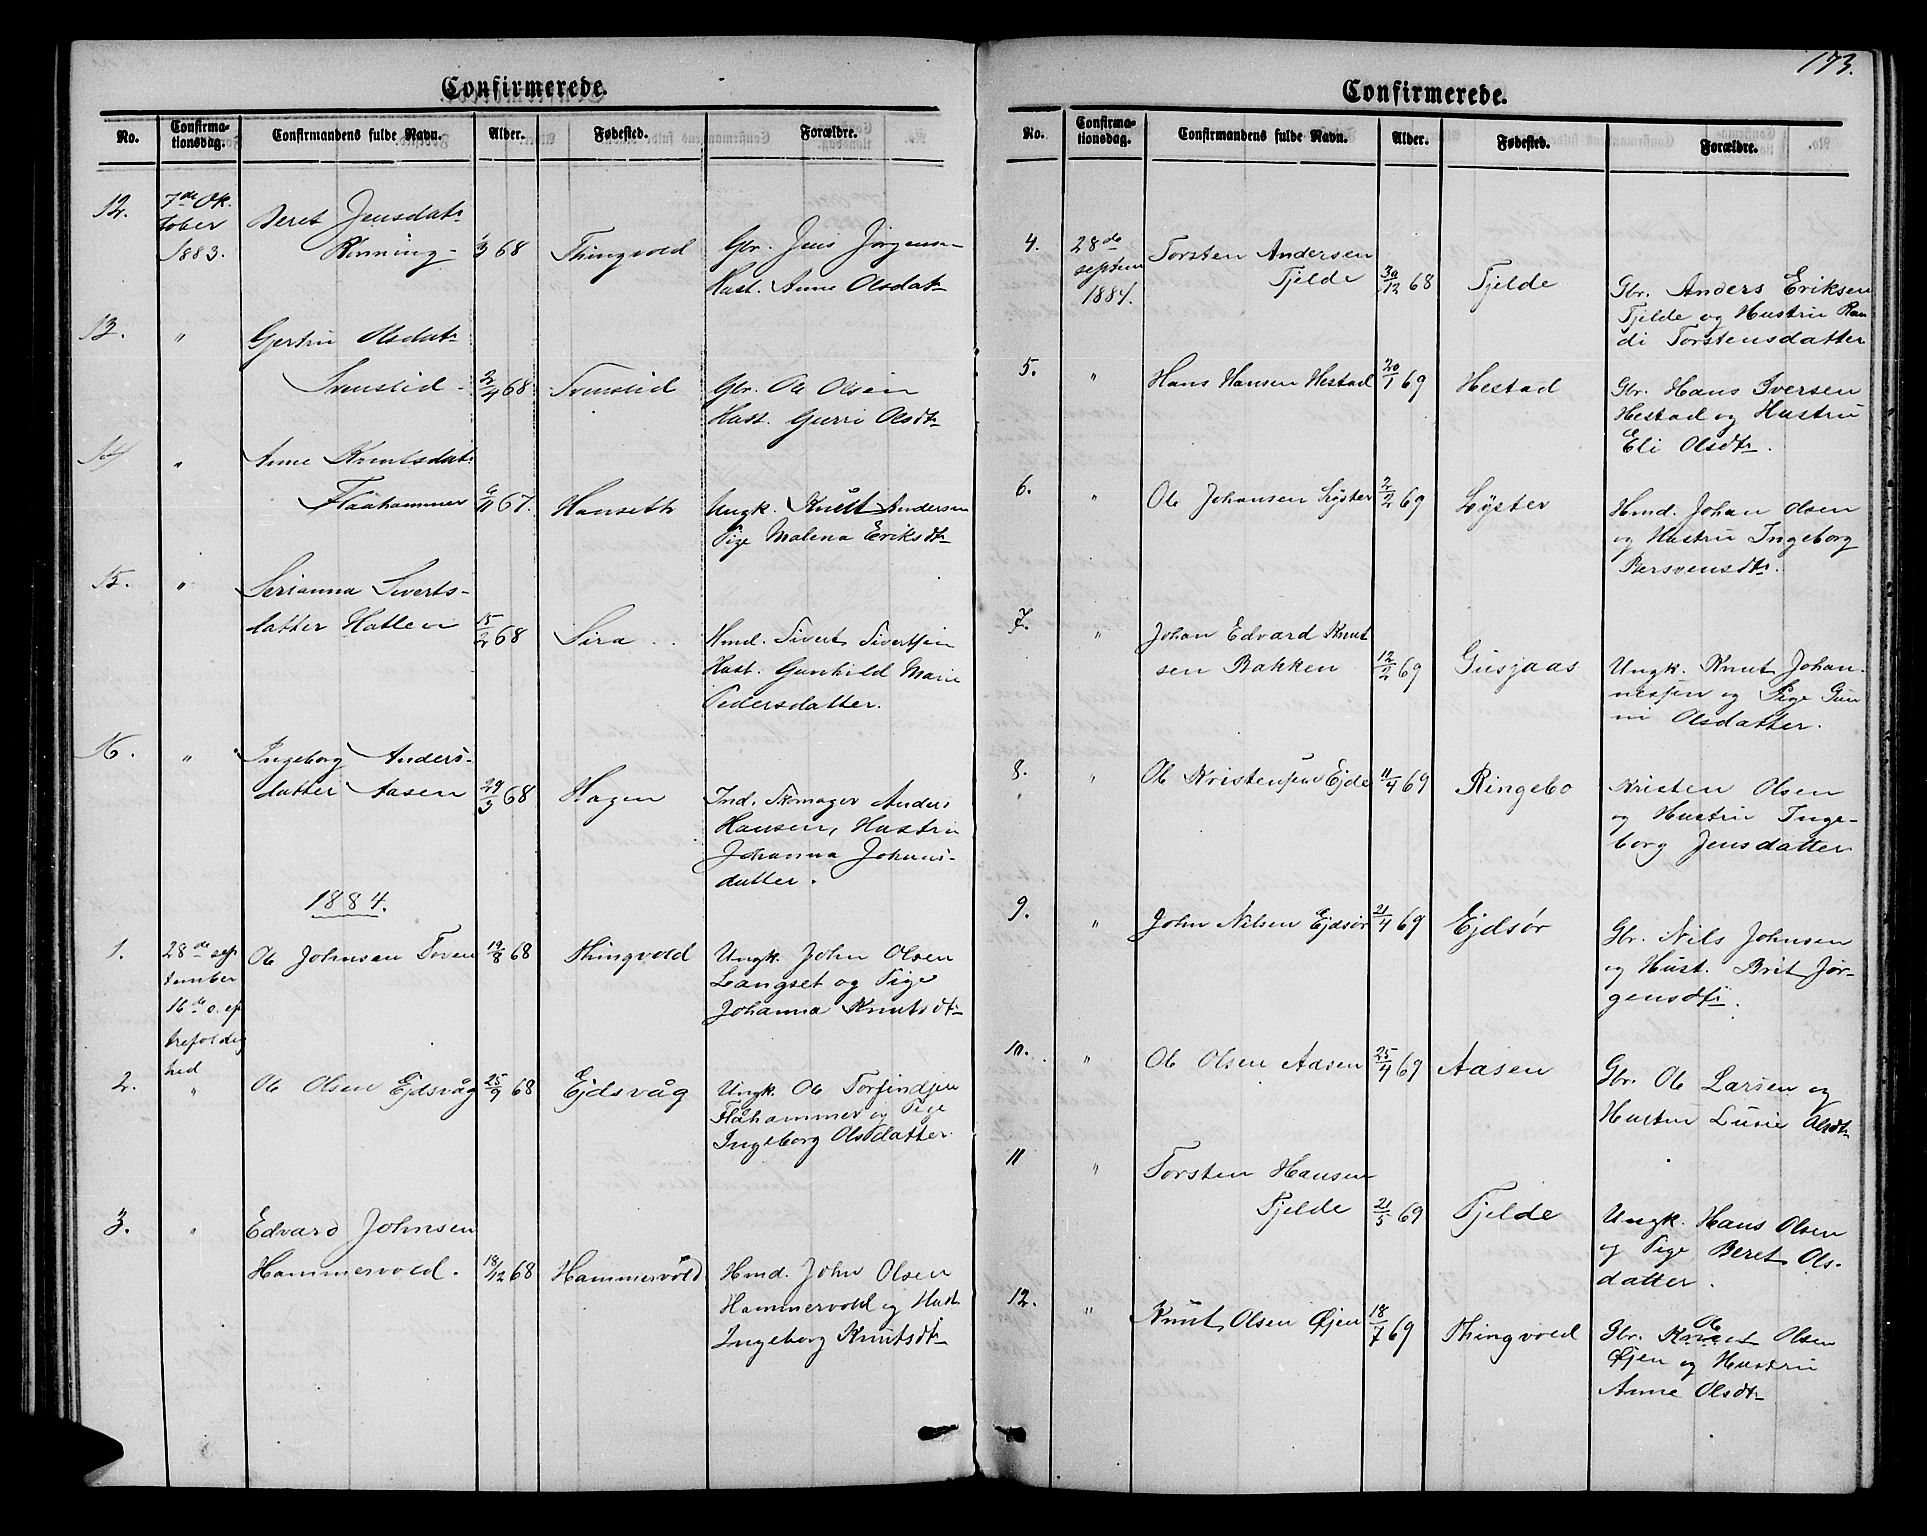 Confirmerede.
No. Confirma-tionsdag. Confirmandens fulde Navn. Alder. Fødested. Forældre.
12. 7de Ok-
tober
1883.
Beret Jensdatr
Rinning 68 Thingvold
Gbr. Jens Jørgensen
Hust. Anne Olsdatr
13. " Gjertru Olsdatr
68
Gbr. Ole Olsen
Hust. Gurri Olsdtr
14 " Anne Knutsdatr
Flåhammer 6/11 67. Hanseth
Ungk. Knut Andersen
Pige Malena Eriksdtr
15. " Serianna Siverts-
datter Hatlen 15/2 68 Sira
Hmd. Sivert Sivertsen
Hust. Gunhild Marie
Pedersdatter.
16. " Ingeborg Anders-
datter Aasen 29/3 68 Hagen
Ind. Skomager Anders
Hansen, Hustru
Johanna Johans-
datter.
1884.
1. 28de sep
tember
16de s. ef
trefoldig
hed
Ole Johnsen Toven 19/8 68 Thingvold
Ungk. John Olsen
Langset og Pige
Johanna Knutsdtr
2. " Ole Olsen Ejdsvåg 25/9 68 Ejdsvåg
Ungk. Ole Torfindsen
Flåhammer og Pige
Ingeborg Olsdatter
3. " Edvard Johnsen
Hammervold. 18/12 68 Hammervold
Hmd. John Olsen
Hammervold og Hust.
Ingeborg Knutsdtr
173.
Confirmerede.
No. Confirma-tionsdag. Confirmandens fulde Navn. Alder. Fødested. Forældre.
4. 28de
septem
1884.
Torsten Andersen
Tjelde 30/12 68 Tjelde
Gbr. Anders Eriksen
Tjelde og Hustru Ran
di Torstensdatter
5. " Hans Hansen Hestad 20/1 69 Hestad
Gbr. Hans Iversen
Hestad og Hustru
Eli Olsdtr.
6. " Ole Johansen Lyster 2/2 69 Lyster
Hmd. Johan Olsen
og Hustru Ingeborg
Bersvensdtr.
7. " Johan Edvard Knut
sen Bakken 12/2 69 Gusjaas
Ungk. Knut Johan-
nesen og Pige Gun
ni Olsdatter.
8. " Ole Kristensen Ejde 11/4 69 Ringebo
Kristen Olsen
og Hustru Inge-
borg Jensdatter
9. " John Nilsen Ejdsør 21/4 69 Ejdsør
Gbr. Nils Johnsen
og Hust. Brit Jør-
gensdtr.
10. " Ole Olsen Aasen 25/4 69 Aasen
Gbr. Ole Larsen og
Hustru Lusie Olsdtr
11 " Torsten Hansen
Tjelde 21/5 69 Tjelde
Ungk. Hans Olsen
og Pige Beret Ols-
datter.
12. " Knut Olsen Øjen 18/7 69 Thingvold
Ole
Gbr. Knut Olsen
Øjen og Hustru
Anne Olsdtr